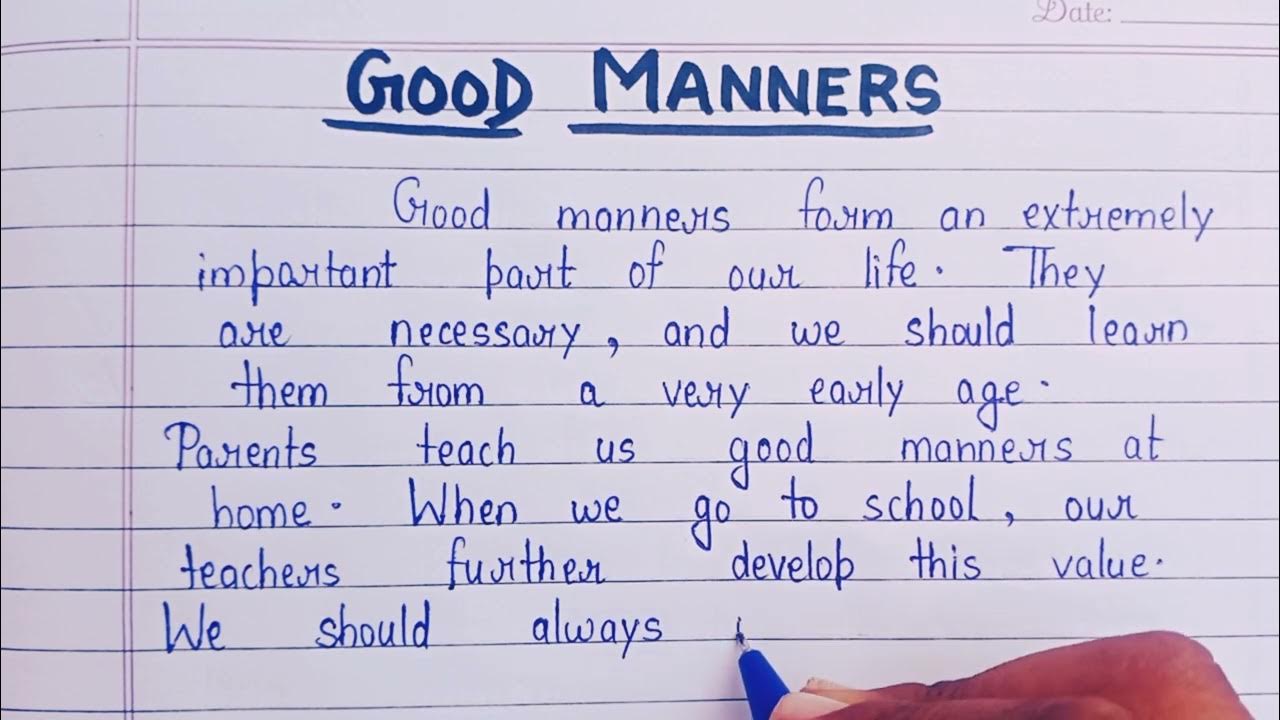 Date:
GOOD MANNERS
Good manners form an extremely
important part of our life. They
are necessary, and we should learn
them from a very early age.
Parents teach us good manners at
home. When we go to school, our
teachers further develop this value.
We should always